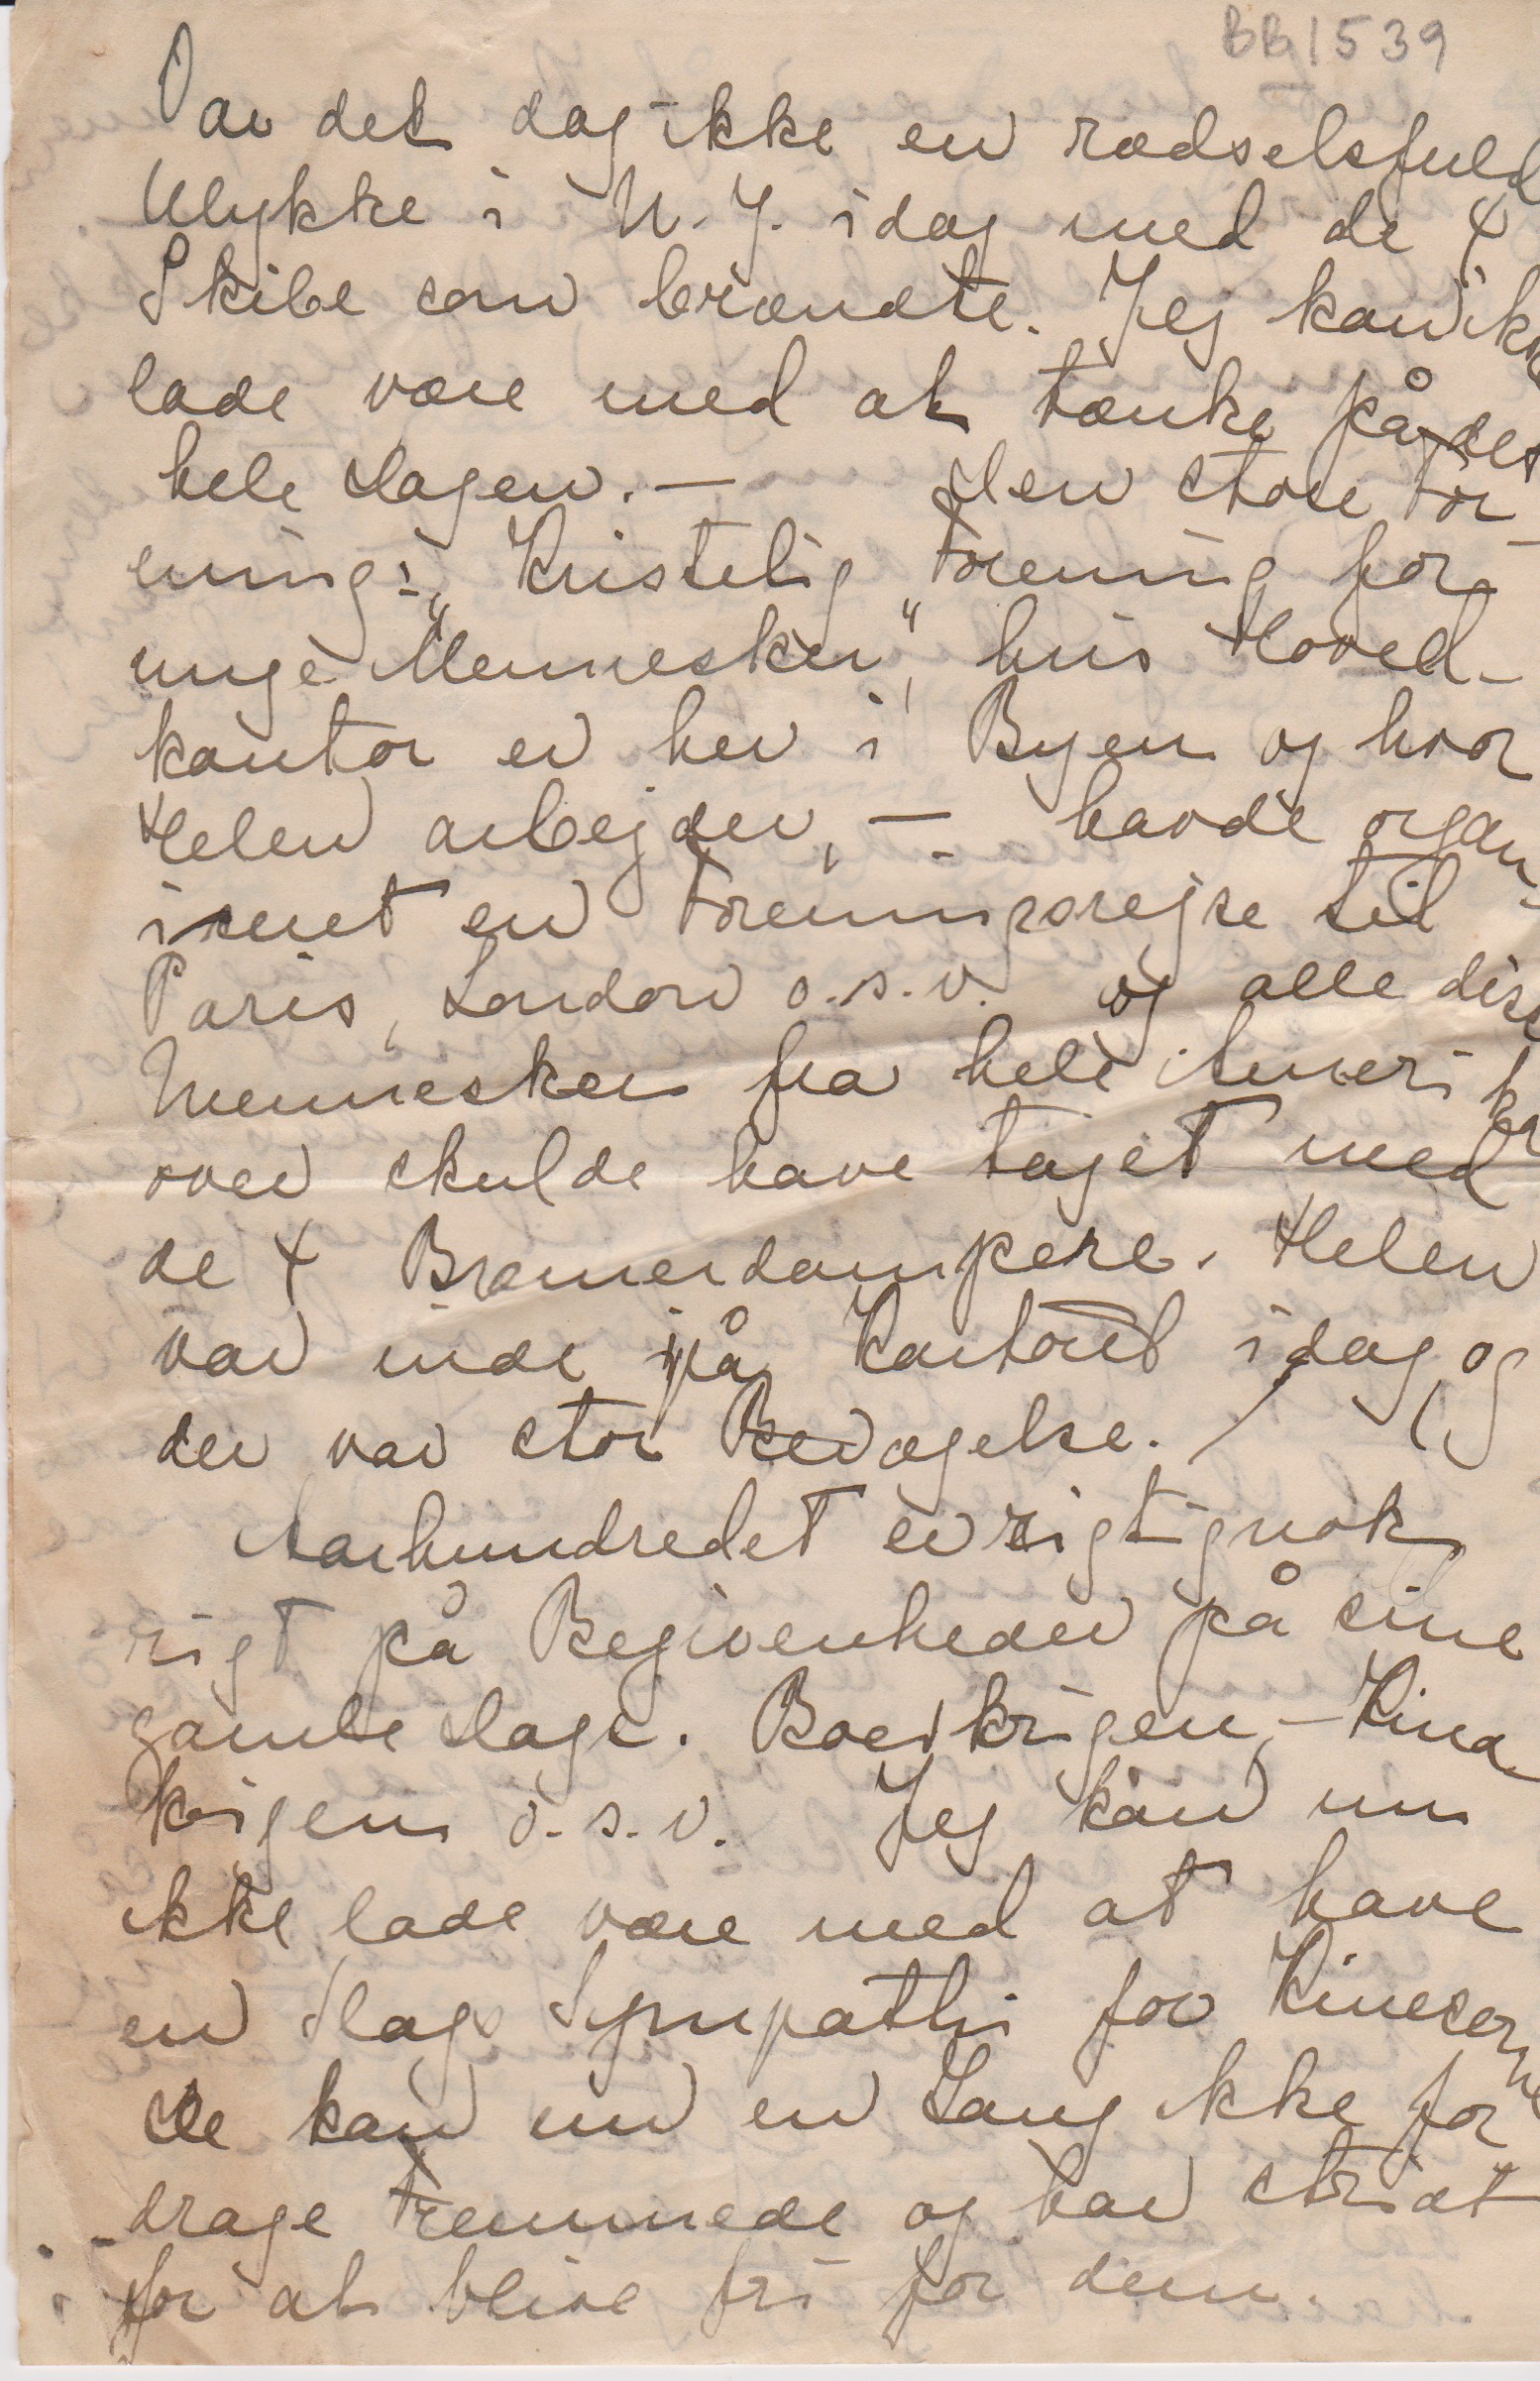 BB1539
Var det dog ikke en rædselsfuld
Ulykke i N.Y. idag med de 4
Skibe som brændte. Jeg kan ikke
lade være med at tænke på det
hele Dagen. — Den store For-
ening: „Kristelig Forening for
unge Mennesker", hvis Hoved-
kontor er her i Byen og hvor
Helen arbejder, — havde organ-
iseret en Foreningsrejse til
Paris, London o.s.v. og alle disse
Mennesker fra hele Amerika
over skulde have taget med
de 4 Bremerdampere. Helen
var inde på Kontoret idag og
der var stor Bevægelse.
Aarhundredet er rigtignok
rigt på Begivenheder på sine
gamle Dage. Boerkrigen, – Kina
krigen o.s.v. Jeg kan nu
ikke lade være med at have
en Slags Sympathi for Kineserne
De kan nu en Gang ikke for
drage Fremmede og har stridt
for at blive fri for dem.